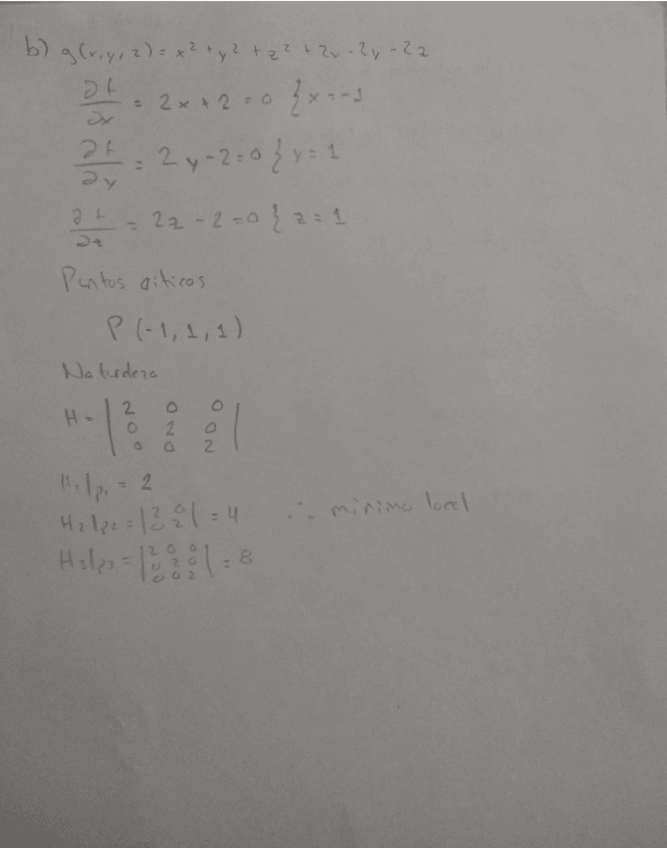 b) g(x,y,z) = x² + y² + z² + 2x - 2y - 2z
∂f/∂x = 2x + 2 = 0 { x = -1
∂f/∂y = 2y - 2 = 0 } y = 1
∂f/∂z = 2z - 2 = 0 { z = 1
Puntos criticos
P (-1, 1, 1)
Naturdeza
H = | 2 0 0 |
| 0 2 0 |
| 0 0 2 |
H₁|p₁ = 2
H₂|p₂ = |2 0 0 2| = 4 ∴ minimo local
H₃|p₃ = |2 0 0 0 2 0 0 0 2| = 8